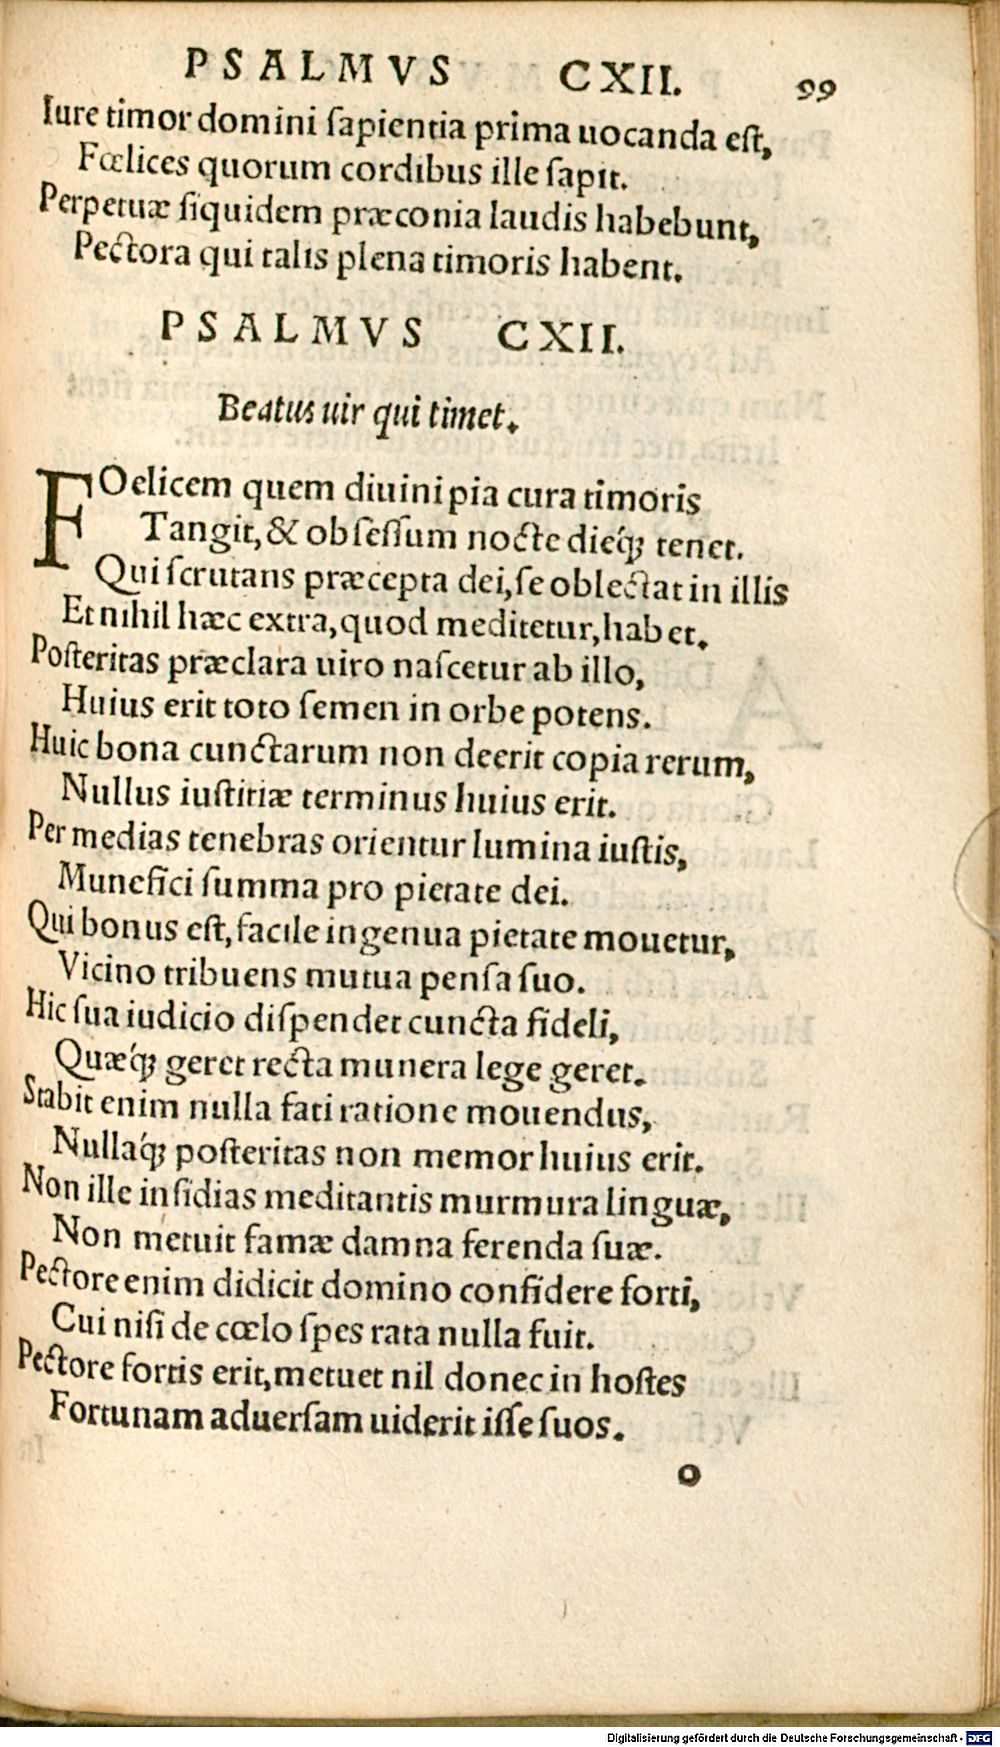 PSALMVS CXII. 99
Iure timor domini ſapientia prima uocanda eſt,
Fœlices quorum cordibus ille ſapit.
Perpetuæ ſiquidem præconia laudis habebunt,
Pectora qui talis plena timoris habent.
PSALMVS CXII.
Beatus uir qui timet.
FOelicem quem diuini pia cura timoris
Tangit, & obſeſſum nocte dieq́; tenet.
Qui ſcrutans præcepta dei, ſe oblectat in illis
Et nihil hæc extra, quod meditetur, habet.
Poſteritas præclara uiro naſcetur ab illo,
Huius erit toto ſemen in orbe potens.
Huic bona cunctarum non deerit copia rerum,
Nullus iuſtitiæ terminus huius erit.
Per medias tenebras orientur lumina iuſtis,
Munefici ſumma pro pietate dei.
Qui bonus eſt, facile ingenua pietate mouetur,
Vicino tribuens mutua penſa ſuo.
Hic ſua iudicio diſpendet cuncta fideli,
Quæq́; geret recta munera lege geret.
Stabit enim nulla fati ratione mouendus,
Nullaq́; poſteritas non memor huius erit.
Non ille inſidias meditantis murmura linguæ,
Non metuit famæ damna ferenda ſuæ.
Pectore enim didicit domino confidere forti,
Cui niſi de cœlo ſpes rata nulla fuit.
Pectore fortis erit, metuet nil donec in hoſtes
Fortunam aduerſam uiderit iſſe ſuos.
o
Digitalisierung gefördert durch die Deutsche Forschungsgemeinschaft - DFG